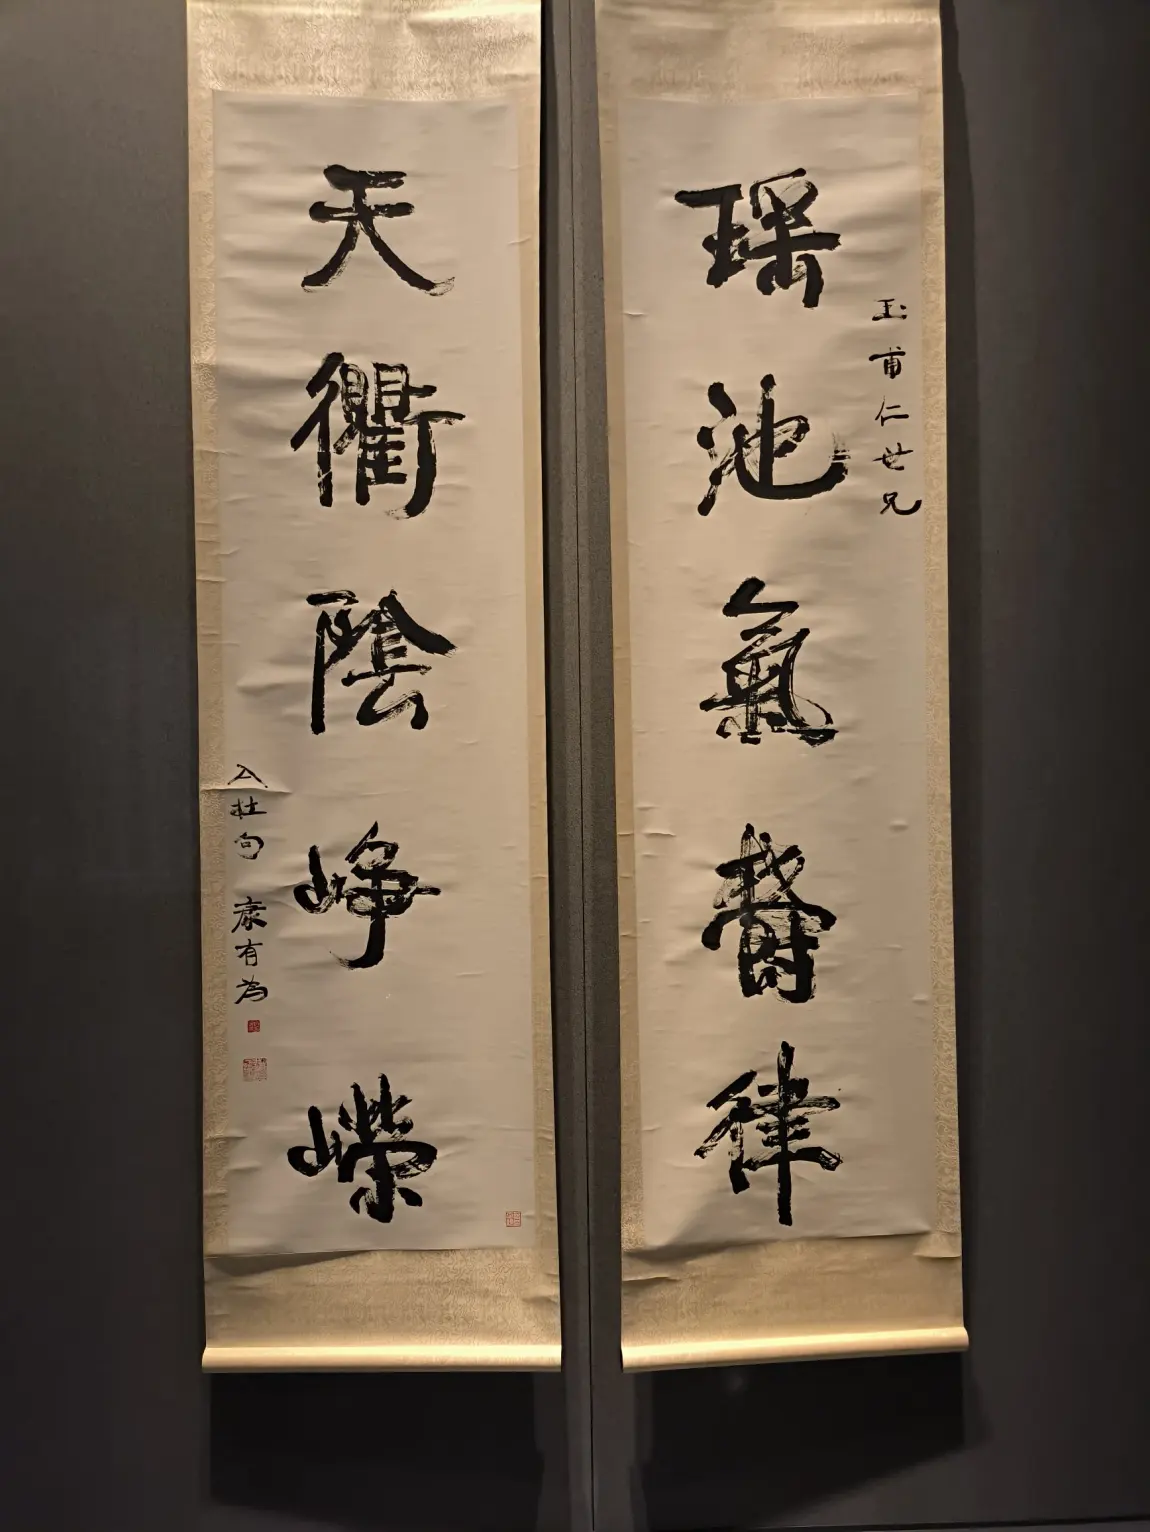 瑶池氣鬱律
玉甫仁世兄
天衢陰崢嶸
亼杜句 康有為